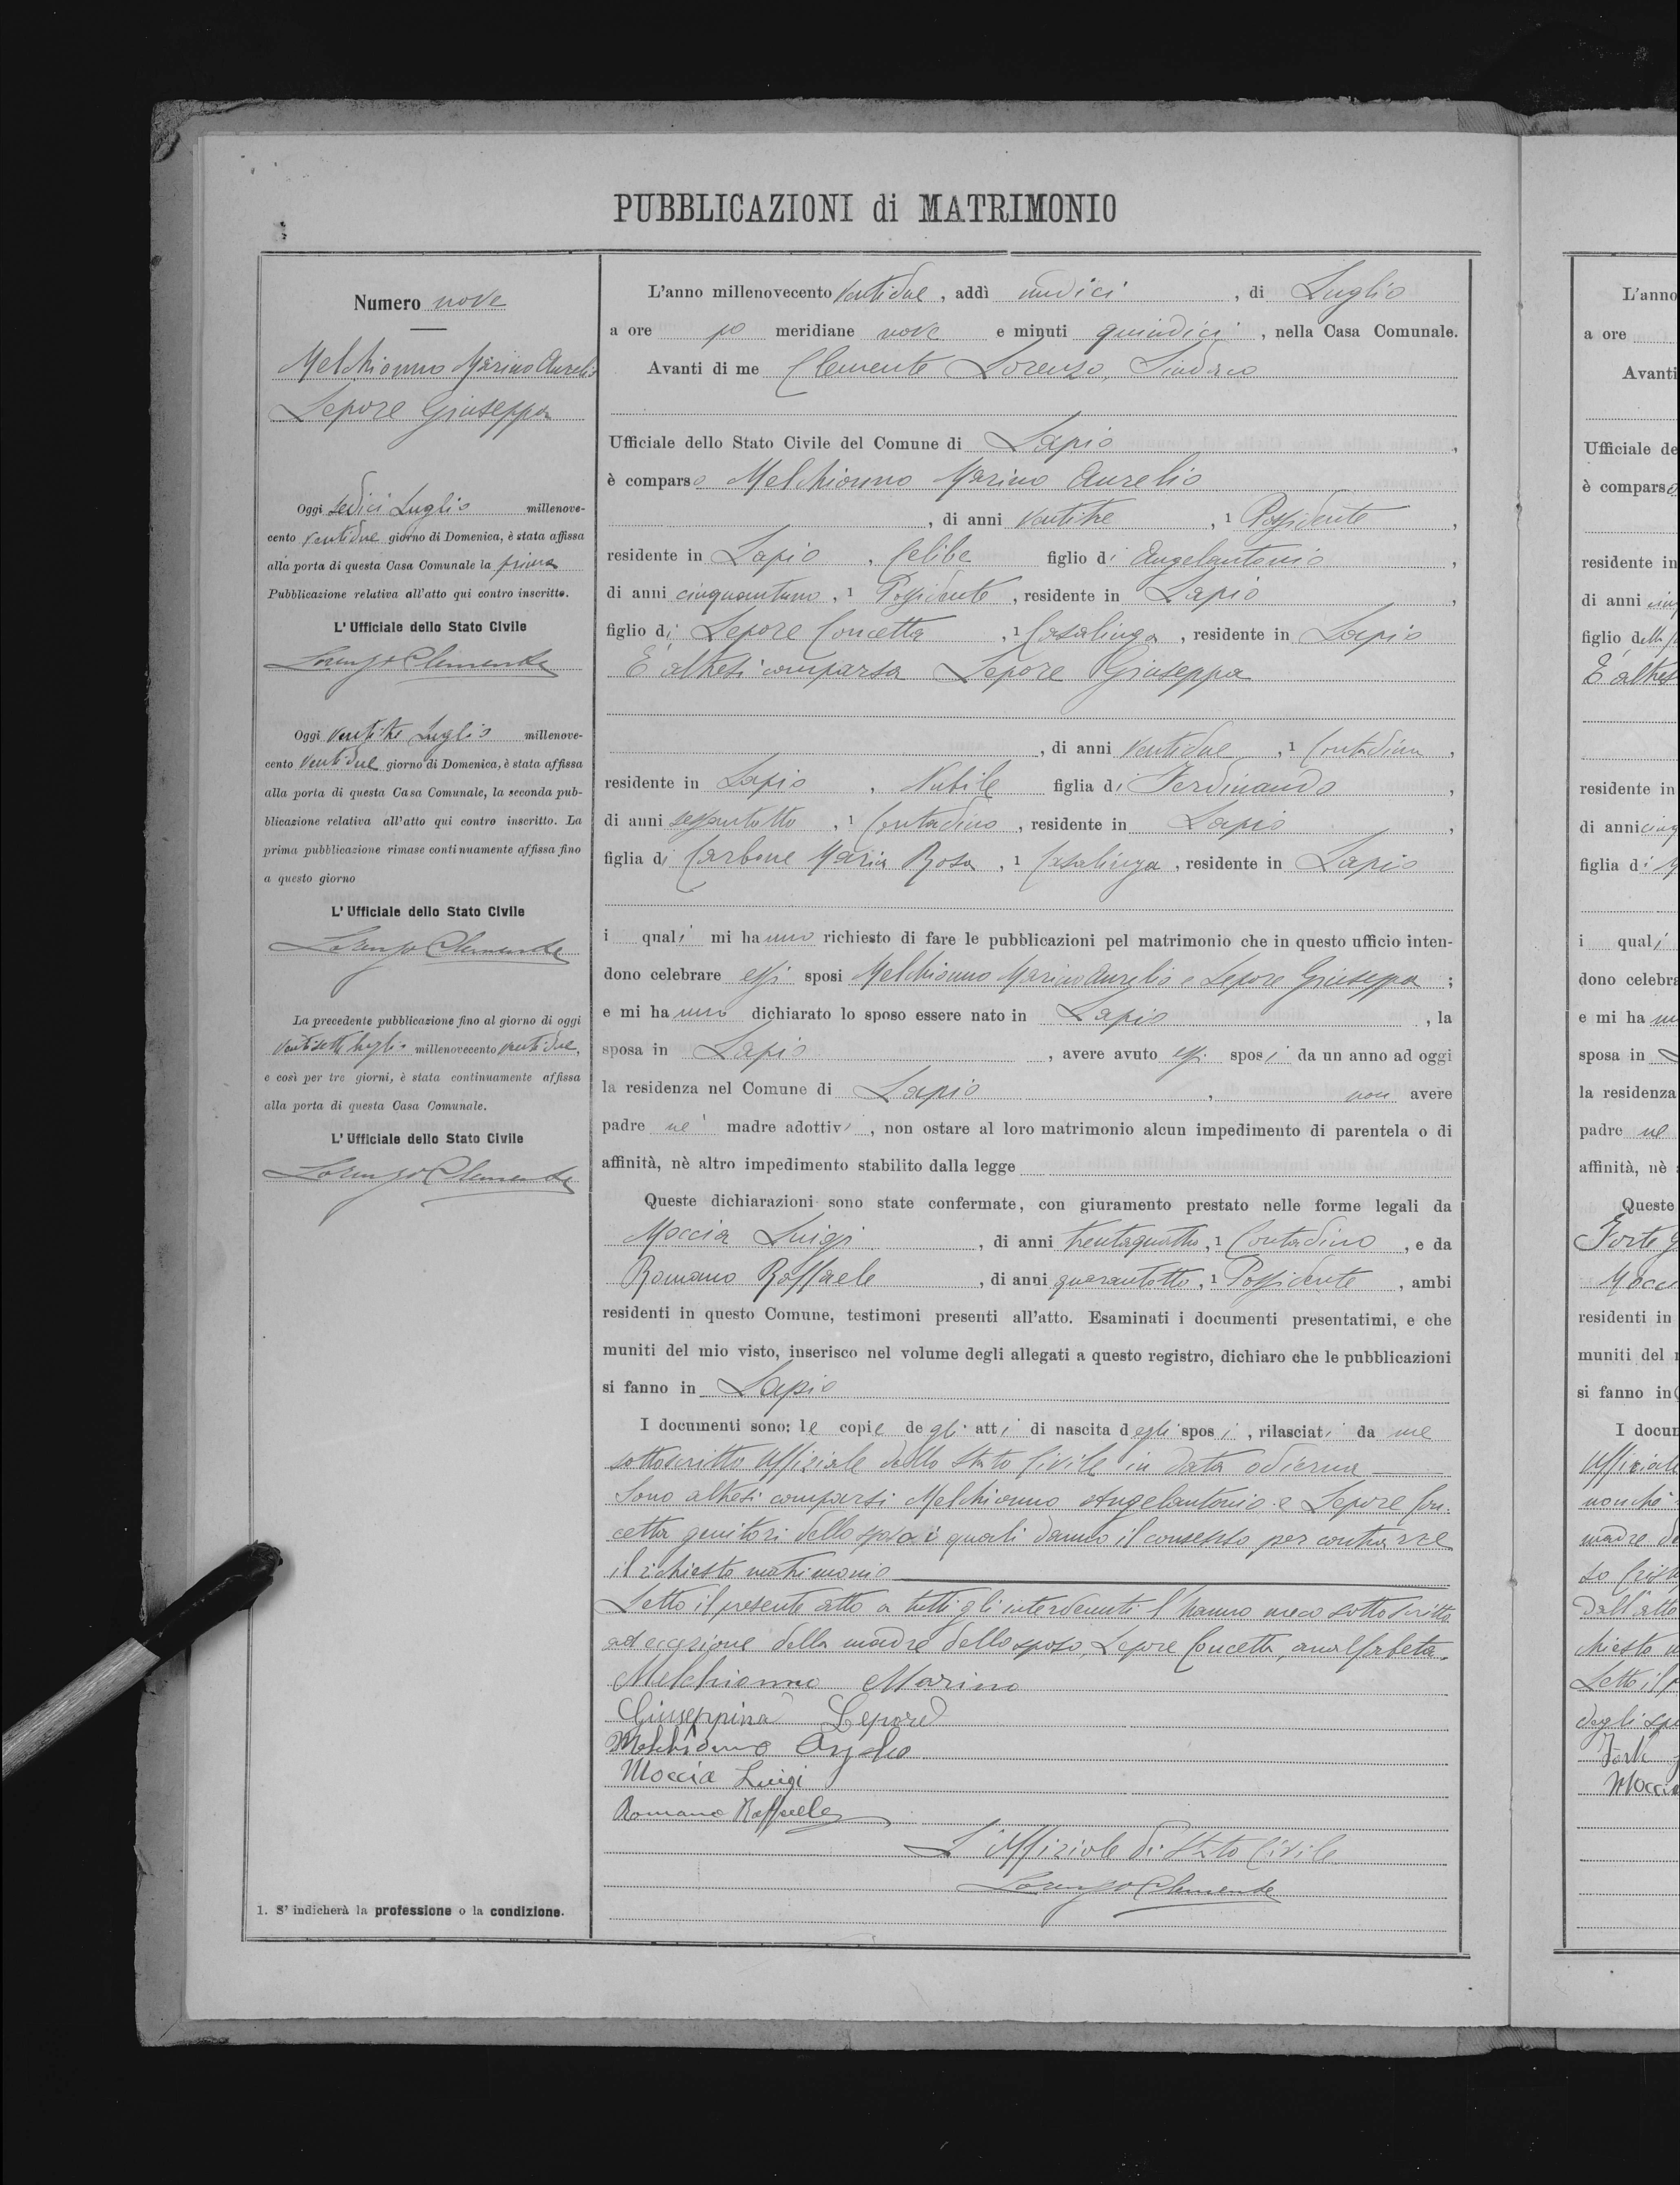 PUBBLICAZIONI di MATRIMONIO
Numero nove
Melchionno Marino Aurelio
Lepore Giuseppa
Oggi sedici Luglio millenove-
cento ventidue giorno di Domenica, è stata affissa
alla porta di questa Casa Comunale la prima
Pubblicazione relativa all'atto qui contro inscritto.
L'Ufficiale dello Stato Civile
Lorenzo Clemente
Oggi ventitre Luglio millenove-
cento ventidue giorno di Domenica, è stata affissa
alla porta di questa Casa Comunale, la seconda pub-
blicazione relativa all'atto qui contro inscritto. La
prima pubblicazione rimase continuamente affissa fino
a questo giorno
L'Ufficiale dello Stato Civile
Lorenzo Clemente
La precedente pubblicazione fino al giorno di oggi
ventisette luglio millenovecento ventidue,
e così per tre giorni, è stata continuamente affissa
alla porta di questa Casa Comunale.
L'Ufficiale dello Stato Civile
Lorenzo Clemente
1. S'indicherà la professione o la condizione.
L'anno millenovecento ventidue, addì undici, di Luglio
a ore po meridiane nove e minuti quindici, nella Casa Comunale.
Avanti di me Clemente Lorenzo, Sindaco
Ufficiale dello Stato Civile del Comune di Lapio,
è comparso Melchionno Marino Aurelio
, di anni ventitre, 1 Possidente,
residente in Lapio, celibe figlio di Angelantonio,
di anni cinquantuno, 1 Possidente, residente in Lapio,
figlio di Lepore Concetta, 1 Casalinga, residente in Lapio
E' altresì comparsa Lepore Giuseppa
, di anni ventidue, 1 Contadina,
residente in Lapio, Nubile figlia di Ferdinando,
di anni sessantotto, 1 Contadino, residente in Lapio,
figlia di Carbone Maria Rosa, 1 Casalinga, residente in Lapio
i quali mi hanno richiesto di fare le pubblicazioni pel matrimonio che in questo ufficio inten-
dono celebrare essi sposi Melchionno Marino Aurelio e Lepore Giuseppa;
e mi hanno dichiarato lo sposo essere nato in Lapio, la
sposa in Lapio, avere avuto essi sposi da un anno ad oggi
la residenza nel Comune di Lapio, non avere
padre nè madre adottivi, non ostare al loro matrimonio alcun impedimento di parentela o di
affinità, nè altro impedimento stabilito dalla legge
Queste dichiarazioni sono state confermate, con giuramento prestato nelle forme legali da
Moccia Luigi, di anni trentaquattro, 1 Contadino, e da
Romano Raffaele, di anni quarantotto, 1 Possidente, ambi
residenti in questo Comune, testimoni presenti all'atto. Esaminati i documenti presentatimi, e che
muniti del mio visto, inserisco nel volume degli allegati a questo registro, dichiaro che le pubblicazioni
si fanno in Lapio
I documenti sono: le copie degli atti di nascita degli sposi, rilasciati da me
sottoscritto Uffiziale dello Stato Civile in data odierna
Sono altresì comparsi Melchionno Angelantonio e Lepore Con-
cetta genitori dello sposo i quali danno il consenso per contrarre
il richiesto matrimonio
Letto il presente atto a tutti gli intervenuti l'hanno meco sottoscritto
ad eccezione della madre dello sposo, Lepore Concetta, analfabeta.
Melchionno Marino
Giuseppina Lepore
Melchionno
Moccia Luigi
Romano Raffaele
L'Uffiziale di Stato Civile
Lorenzo Clemente
L'anno
a ore
Avanti
Ufficiale de
è comparso
residente in
di anni
figlio della
E' altres
residente in
di anni cinq
figlia di
i quali
dono celebra
e mi ha
sposa in
la residenza
padre nè
affinità, nè
Queste
Forte
Mocc
residenti in
muniti del
si fanno in
I docum
Uffiziale
nonchè
madre
dall'atto
chiesto
Letto il p
degli spo
Forte
Moccia